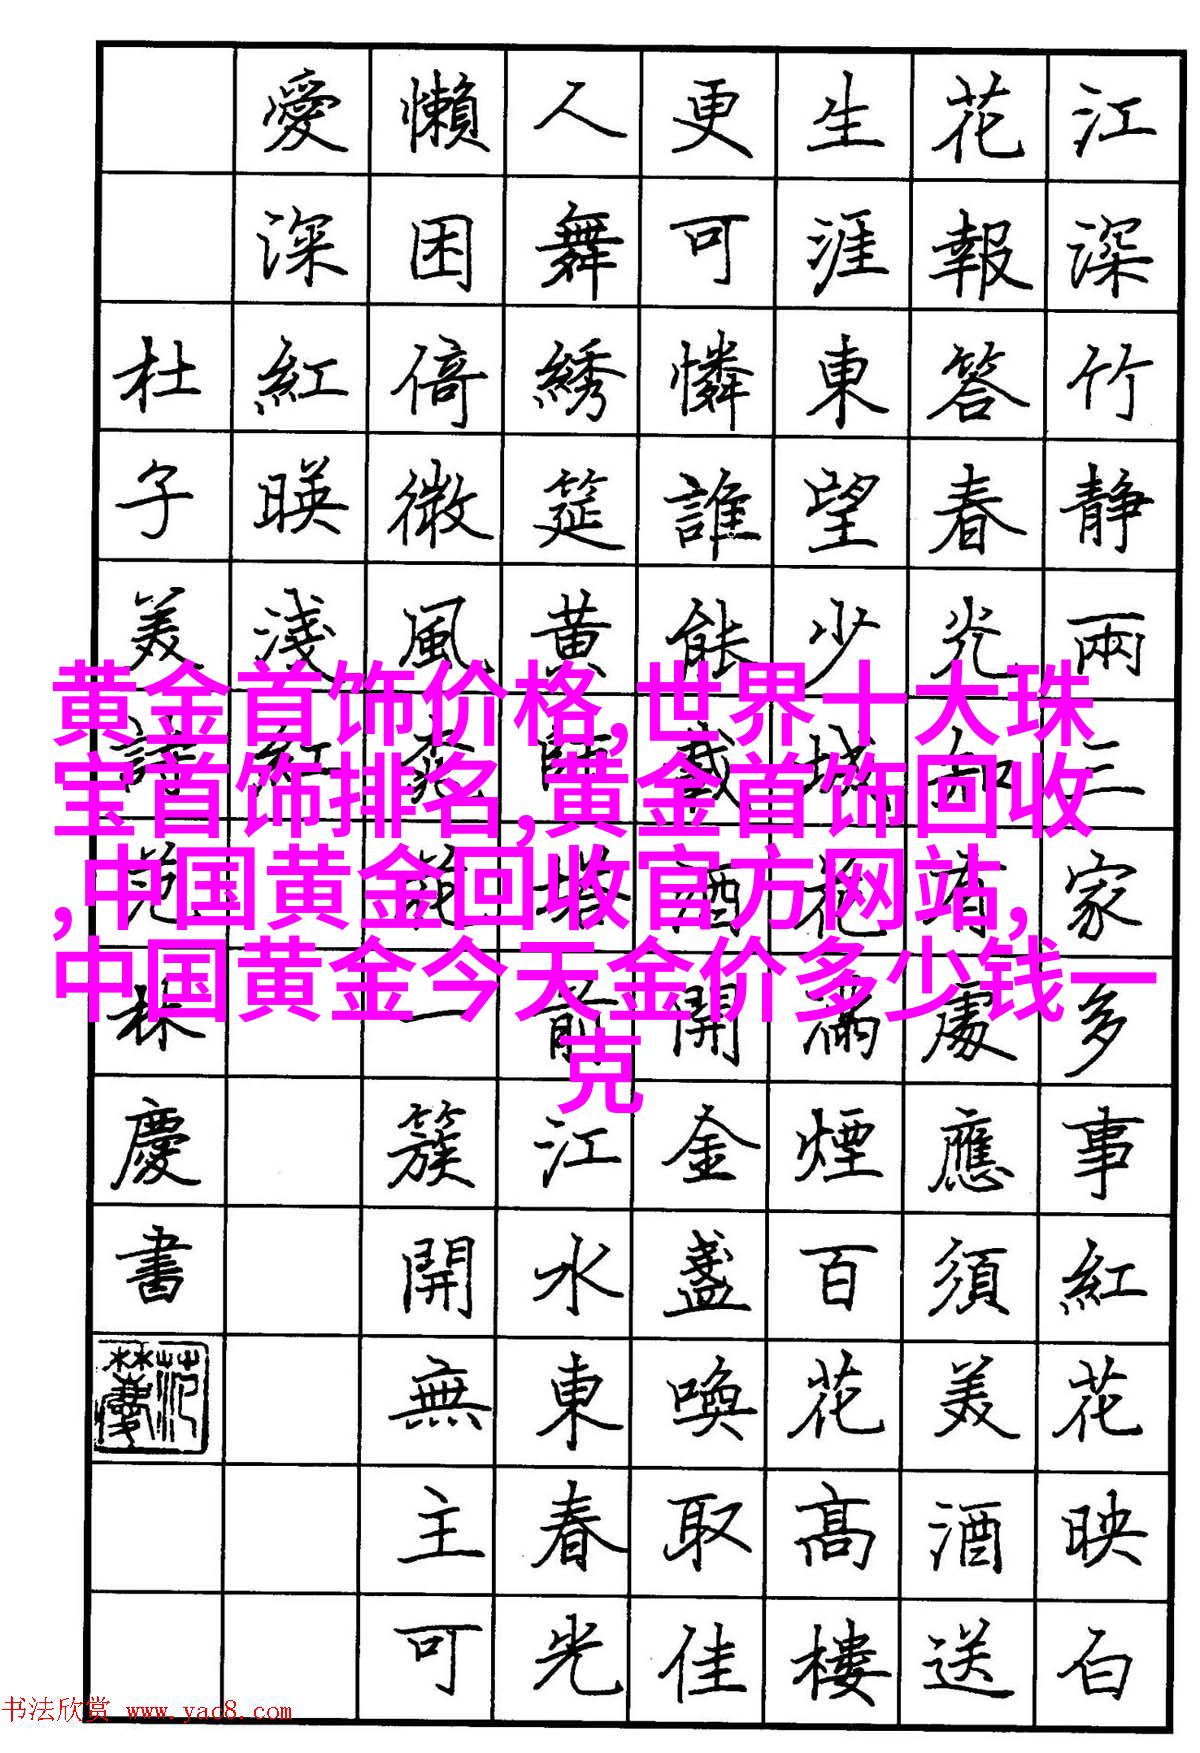 江深竹静兩三家多事紅花映白
花報答春光知有處應須美酒送
生涯東望少城花滿煙百花高樓
更可憐誰能載酒開金盞喚取佳
人舞綉筵黄師塔前江水東春光
懶困倚微風桃花一簇開無主可
愛深紅暎淺紅
杜子美詩范林慶書
范林慶
黄金首饰价格,世界十大珠
宝首饰排名,黄金首饰回收
,中国黄金回收官方网站,
中国黄金今天金价多少钱一
克
书法欣赏 www.yac8.com